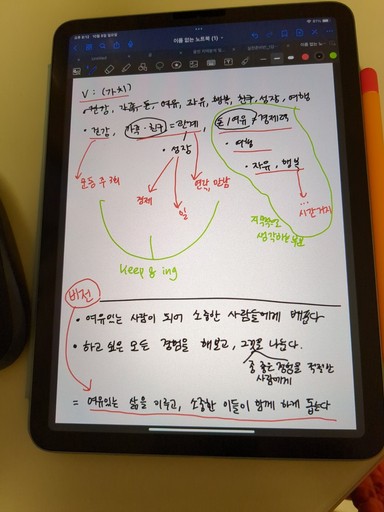 이름 없는 노트북 (1)
V : (가치)
건강, 가족, 돈, 여유, 자유, 행복, 친구, 성장, 여행
• 건강, 가족·친구 = 관계, 돈, 여유 = 경제력
• 성장
• 여행
• 자유, 행복
운동 주 3회
경제
일
연락, 만남
...
시간, 거지
keep & ing
비전
• 여유있는 사람이 되어 소중한 사람들에게 베푼다
• 하고 싶은 모든 경험을 해보고, 그것을 나눈다.
사람에게
= 여유있는 삶을 이루고, 소중한 이들이 함께 하게 돕는다